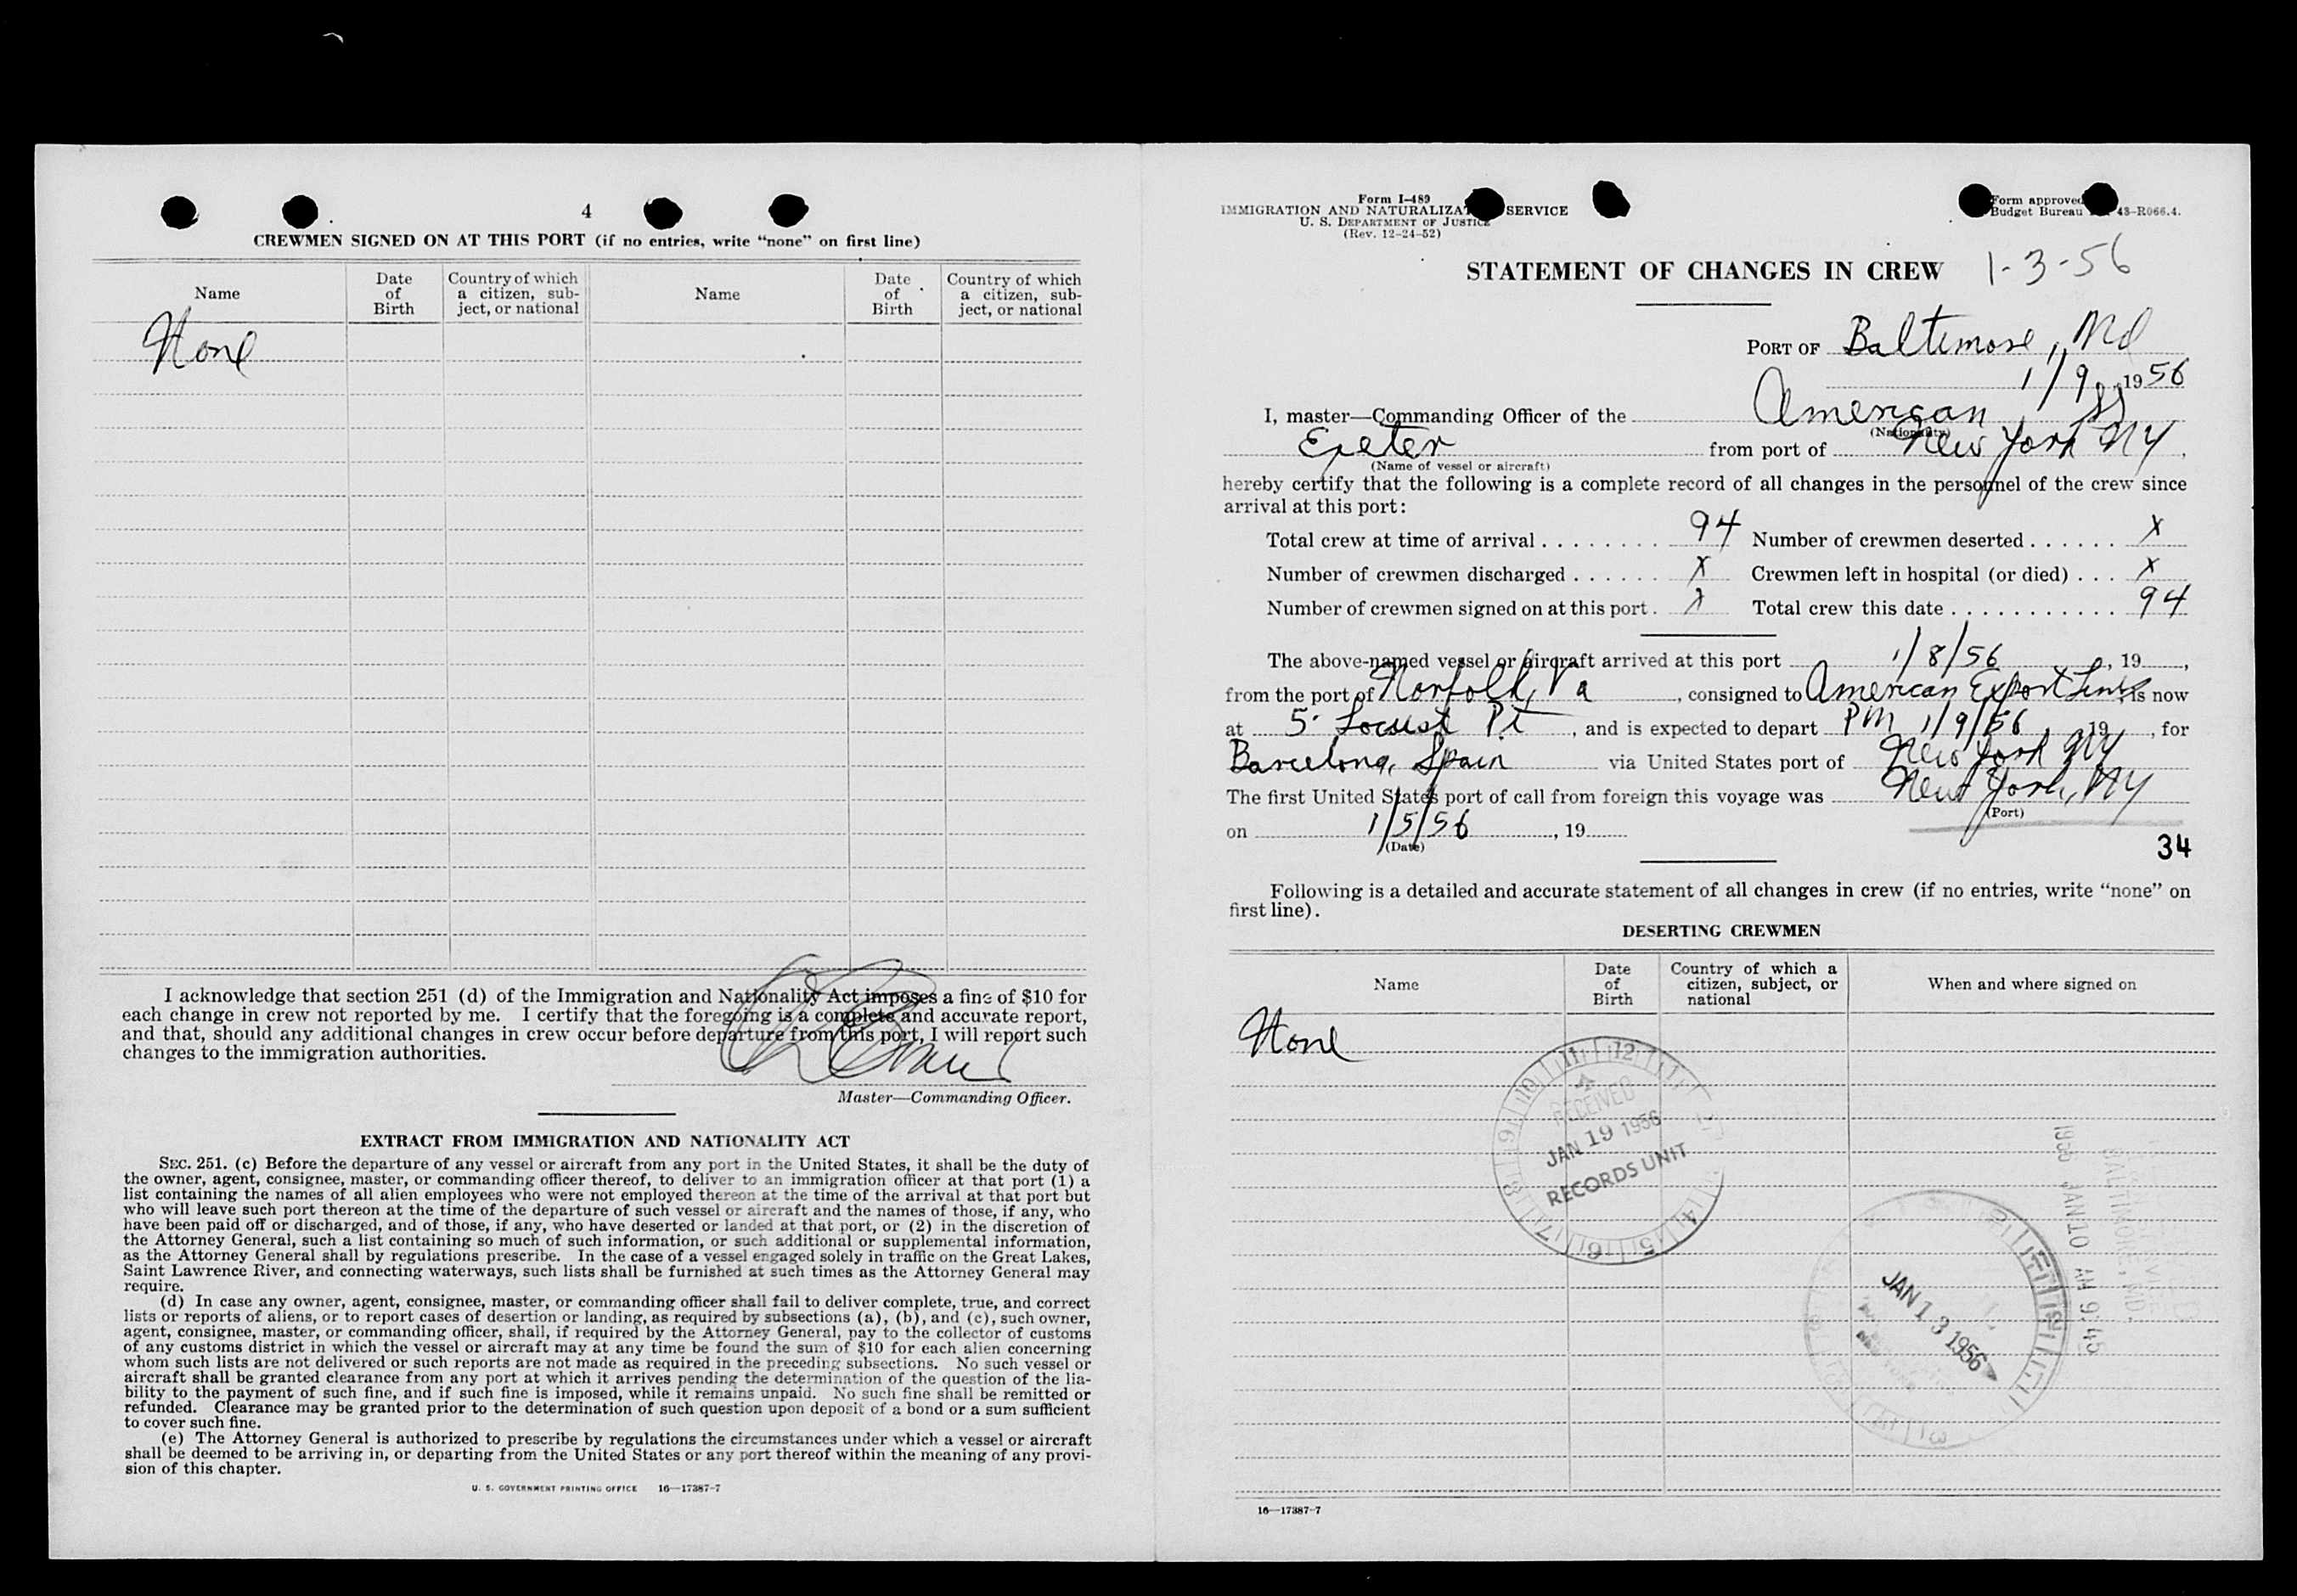 4
CREWMEN SIGNED ON AT THIS PORT (if no entries, write “none” on first line)
Name
Date of Birth
Country of which a citizen, subject, or national
Name
Date of Birth
Country of which a citizen, subject, or national
None
I acknowledge that section 251 (d) of the Immigration and Nationality Act imposes a fine of $10 for
each change in crew not reported by me. I certify that the foregoing is a complete and accurate report,
and that, should any additional changes in crew occur before departure from this port, I will report such
changes to the immigration authorities.
Master—Commanding Officer.
EXTRACT FROM IMMIGRATION AND NATIONALITY ACT
SEC. 251. (c) Before the departure of any vessel or aircraft from any port in the United States, it shall be the duty of
the owner, agent, consignee, master, or commanding officer thereof, to deliver to an immigration officer at that port (1) a
list containing the names of all alien employees who were not employed thereon at the time of the arrival at that port but
who will leave such port thereon at the time of the departure of such vessel or aircraft and the names of those, if any, who
have been paid off or discharged, and of those, if any, who have deserted or landed at that port, or (2) in the discretion of
the Attorney General, such a list containing so much of such information, or such additional or supplemental information,
as the Attorney General shall by regulations prescribe. In the case of a vessel engaged solely in traffic on the Great Lakes,
Saint Lawrence River, and connecting waterways, such lists shall be furnished at such times as the Attorney General may
require.
(d) In case any owner, agent, consignee, master, or commanding officer shall fail to deliver complete, true, and correct
lists or reports of aliens, or to report cases of desertion or landing, as required by subsections (a), (b), and (c), such owner,
agent, consignee, master, or commanding officer, shall, if required by the Attorney General, pay to the collector of customs
of any customs district in which the vessel or aircraft may at any time be found the sum of $10 for each alien concerning
whom such lists are not delivered or such reports are not made as required in the preceding subsections. No such vessel or
aircraft shall be granted clearance from any port at which it arrives pending the determination of the question of the lia-
bility to the payment of such fine, and if such fine is imposed, while it remains unpaid. No such fine shall be remitted or
refunded. Clearance may be granted prior to the determination of such question upon deposit of a bond or a sum sufficient
to cover such fine.
(e) The Attorney General is authorized to prescribe by regulations the circumstances under which a vessel or aircraft
shall be deemed to be arriving in, or departing from the United States or any port thereof within the meaning of any provi-
sion of this chapter.
U. S. GOVERNMENT PRINTING OFFICE 16—17387-7
Form I-489
IMMIGRATION AND NATURALIZAT SERVICE
U. S. DEPARTMENT OF JUSTICE
(Rev. 12-24-52)
Form approved
Budget Bureau 43-R066.4.
STATEMENT OF CHANGES IN CREW 1-3-56
PORT OF Baltimore, Md
1/9, 1956
I, master—Commanding Officer of the American SS
(Nationality)
Exeter from port of New York NY,
(Name of vessel or aircraft)
hereby certify that the following is a complete record of all changes in the personnel of the crew since
arrival at this port:
Total crew at time of arrival 94 Number of crewmen deserted X
Number of crewmen discharged X Crewmen left in hospital (or died) X
Number of crewmen signed on at this port X Total crew this date 94
The above-named vessel or aircraft arrived at this port 1/8/56, 19,
from the port of Norfolk, Va, consigned to American Export Lines, is now
at 5 Locust Pt, and is expected to depart PM 1/9/56, 19, for
Barcelona, Spain via United States port of New York NY
The first United States port of call from foreign this voyage was New York, NY
(Port)
on 1/5/56, 19
(Date)
34
Following is a detailed and accurate statement of all changes in crew (if no entries, write “none” on
first line).
DESERTING CREWMEN
Name
Date of Birth
Country of which a citizen, subject, or national
When and where signed on
None
RECEIVED
JAN 19 1956
RECORDS UNIT
JAN 13 1956
1956 JAN 10 AM 9:45
BALTIMORE, MD.
16—17387-7